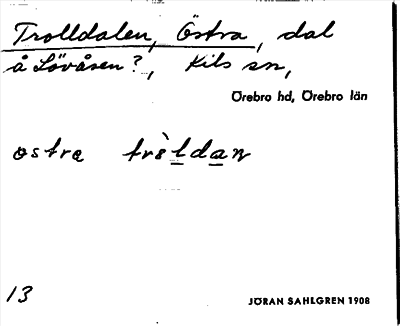 Trolldalen, Östra, dal
å Lövåsen?, Kils sn,
Örebro hd, Örebro län
östra trὸldan
13
JÖRAN SAHLGREN 1908